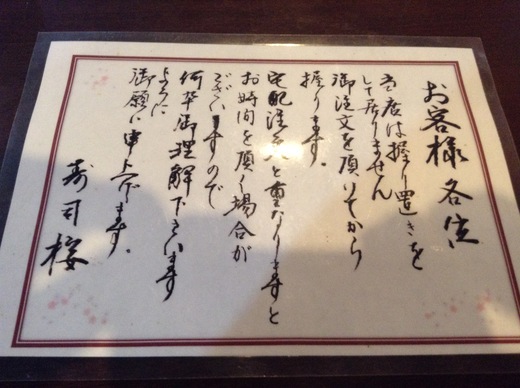 お客様各位
当店は握り置きを
して居りません
御注文を頂いてから
握ります。
宅配注文と重なりますと
お時間を頂く場合が
ございますので
何卒御理解下さいます
ように
御願い申上げます。
寿司桜